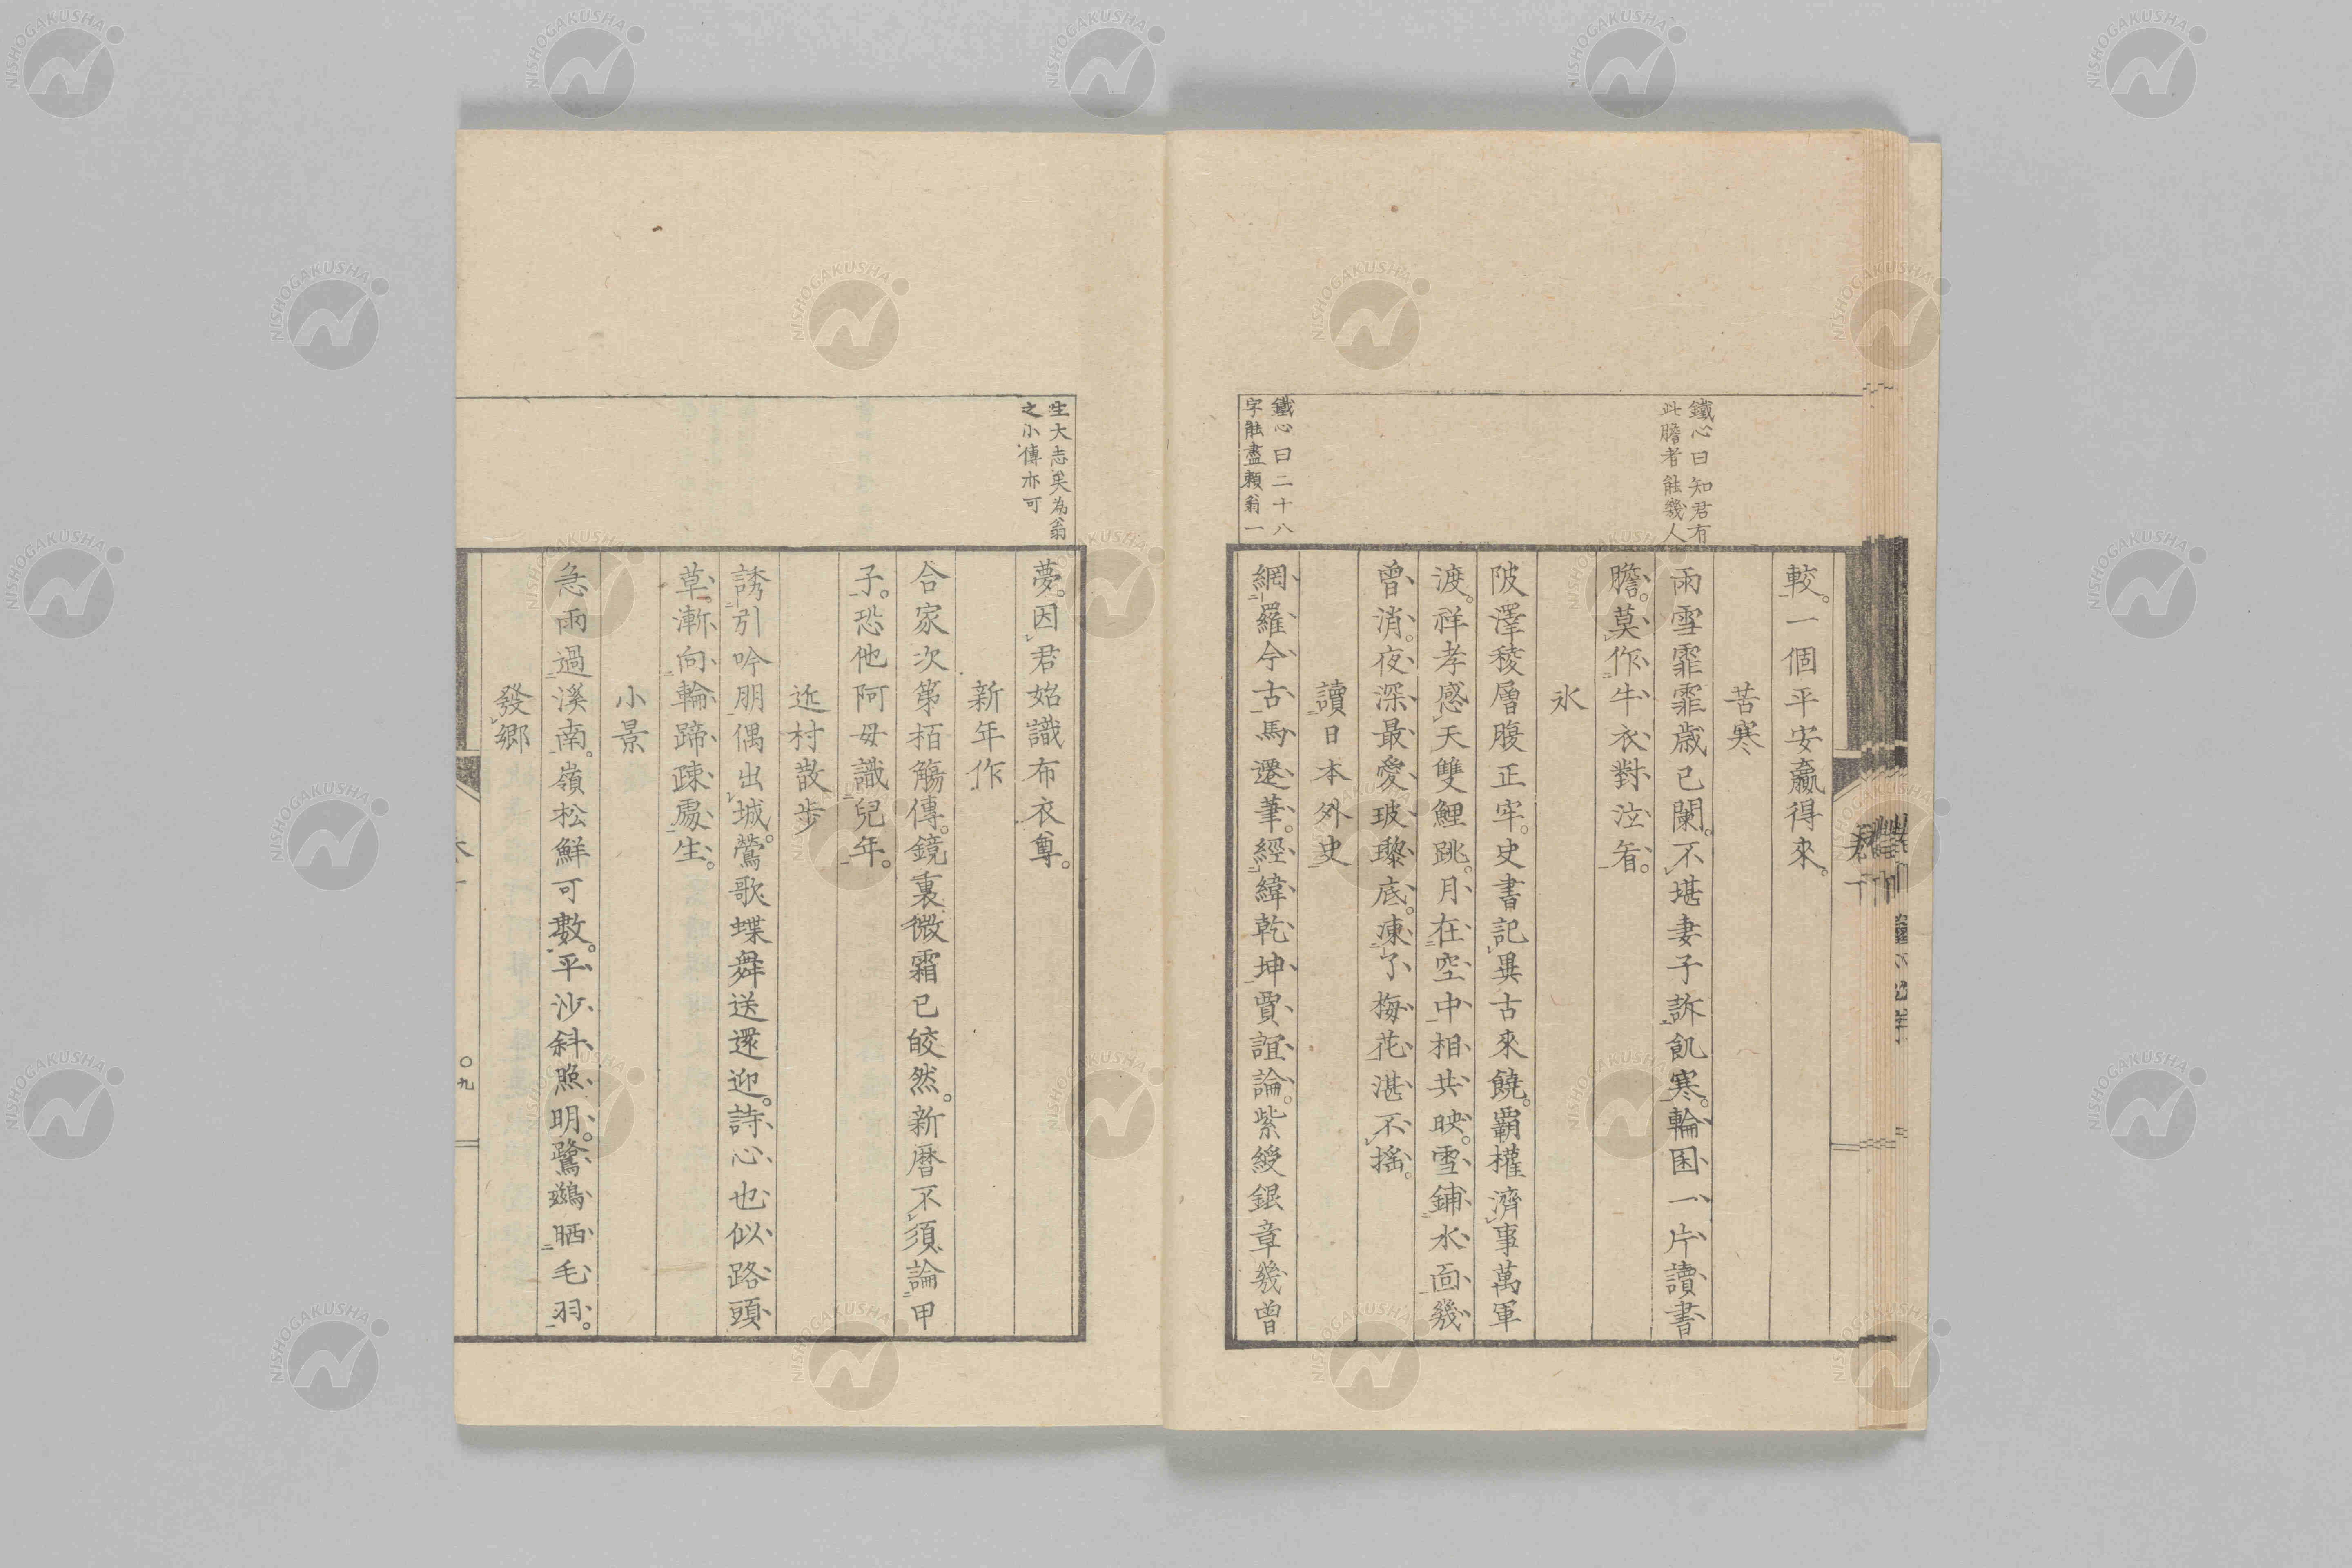 鐵心曰知君有
此膽者能幾人
較。一個平安贏得來。
苦寒
雨雪霏霏歲已闌。不堪妻子訴飢寒。輪囷一片讀書
膽。莫作牛衣對泣看。
氷
陂澤稜層腹正牢。史書記異古來饒。覇權濟事萬軍
渡。祥孝感天雙鯉跳。月在空中相共映。雪鋪水面幾
曾消。夜深最愛玻瓈底。凍了梅花湛不搖。
讀日本外史
鐵心曰二十八
字能盡賴翁一
網羅今古馬遷筆。經緯乾坤賈誼論。紫綬銀章幾曾
生大志矣為翁
之小傳亦可
夢。因君始識布衣尊。
新年作
合家次第栢觴傳。鏡裏微霜已皎然。新曆不須論甲
子。恐他阿母識兒年。
近村散步
誘引吟朋偶出城。鶯歌蝶舞送還迎。詩心也似路頭
草。漸向輪蹄疎處生。
小景
急雨過溪南。嶺松鮮可數。平沙斜照明。鷺鷀晒毛羽。
發鄉
〇九
NISHOGAKUSHA